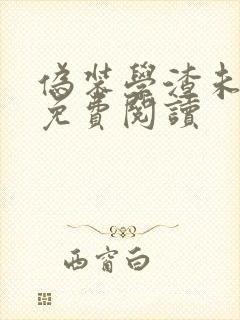 偽裝學渣未
免費閱讀
西窗白